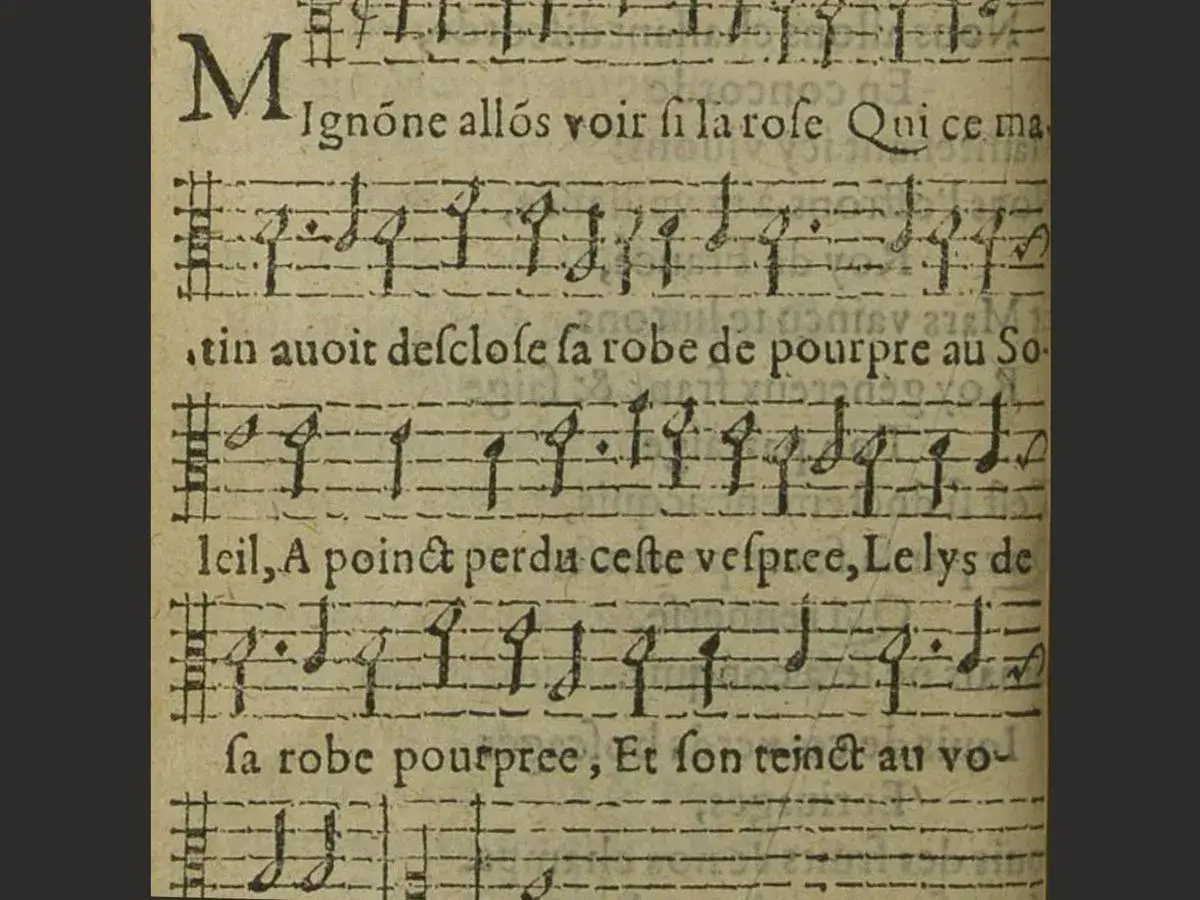 MIgnõne allõs voir ſi la roſe Qui ce ma-
tin auoit deſcloſe ſa robe de pourpre au So-
leil, A poinct perdu ceſte veſpree, Le lys de
ſa robe pourpree, Et ſon teinct au vo-